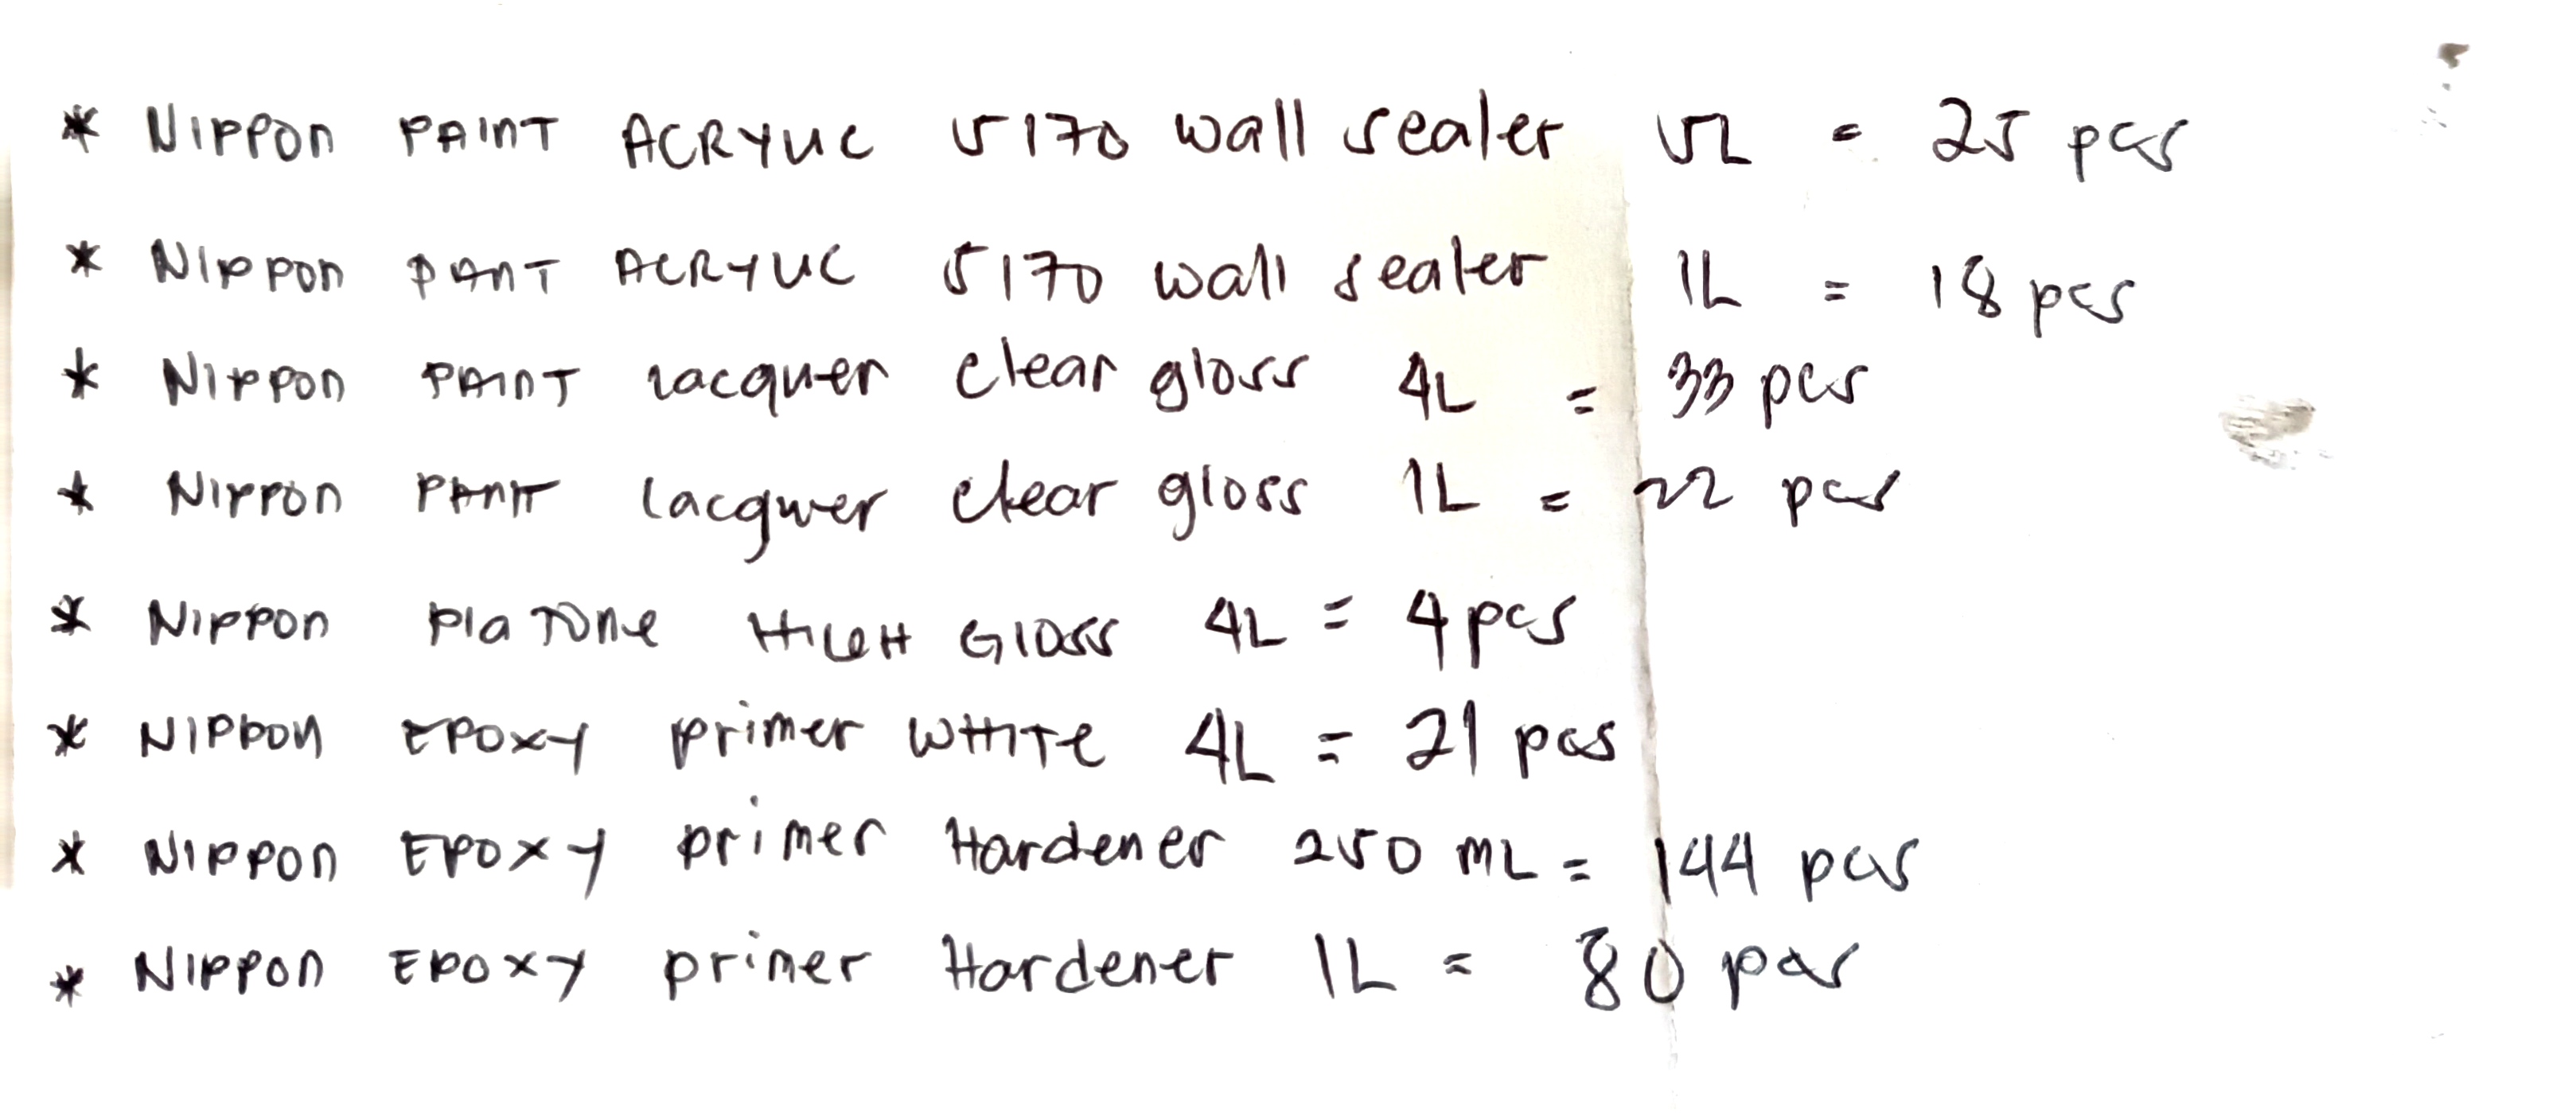 * NIPPON PAINT ACRYLIC 5170 wall sealer 5L = 25 pcs
* NIPPON PAINT ACRYLIC 5170 wall sealer 1L = 18 pcs
* NIPPON PAINT lacquer clear gloss 4L = 33 pcs
* NIPPON PAINT lacquer clear gloss 1L = 22 pcs
* NIPPON Pla Tone HIGH GLOSS 4L = 4 pcs
* NIPPON EPOXY primer WHITE 4L = 21 pcs
* NIPPON EPOXY primer Hardener 250 ML = 144 pcs
* NIPPON EPOXY primer Hardener 1L = 80 pcs